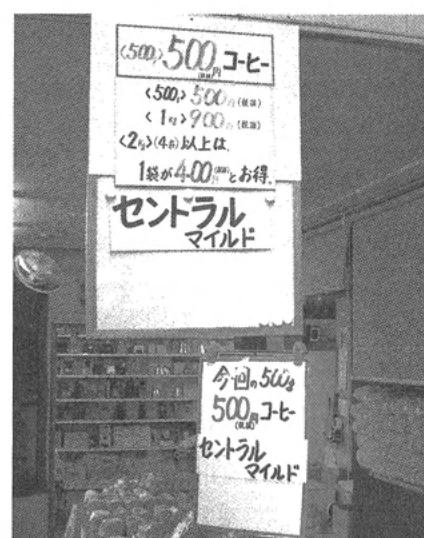 <500g>500円コーヒー
(税抜)
<500g>500円(税抜)
<1kg>900円(税抜)
<2kg>(4袋)以上は、
1袋が400円(税抜)とお得。
セントラル
マイルド
今回の500g
500円コーヒー
(税抜)
セントラル
マイルド